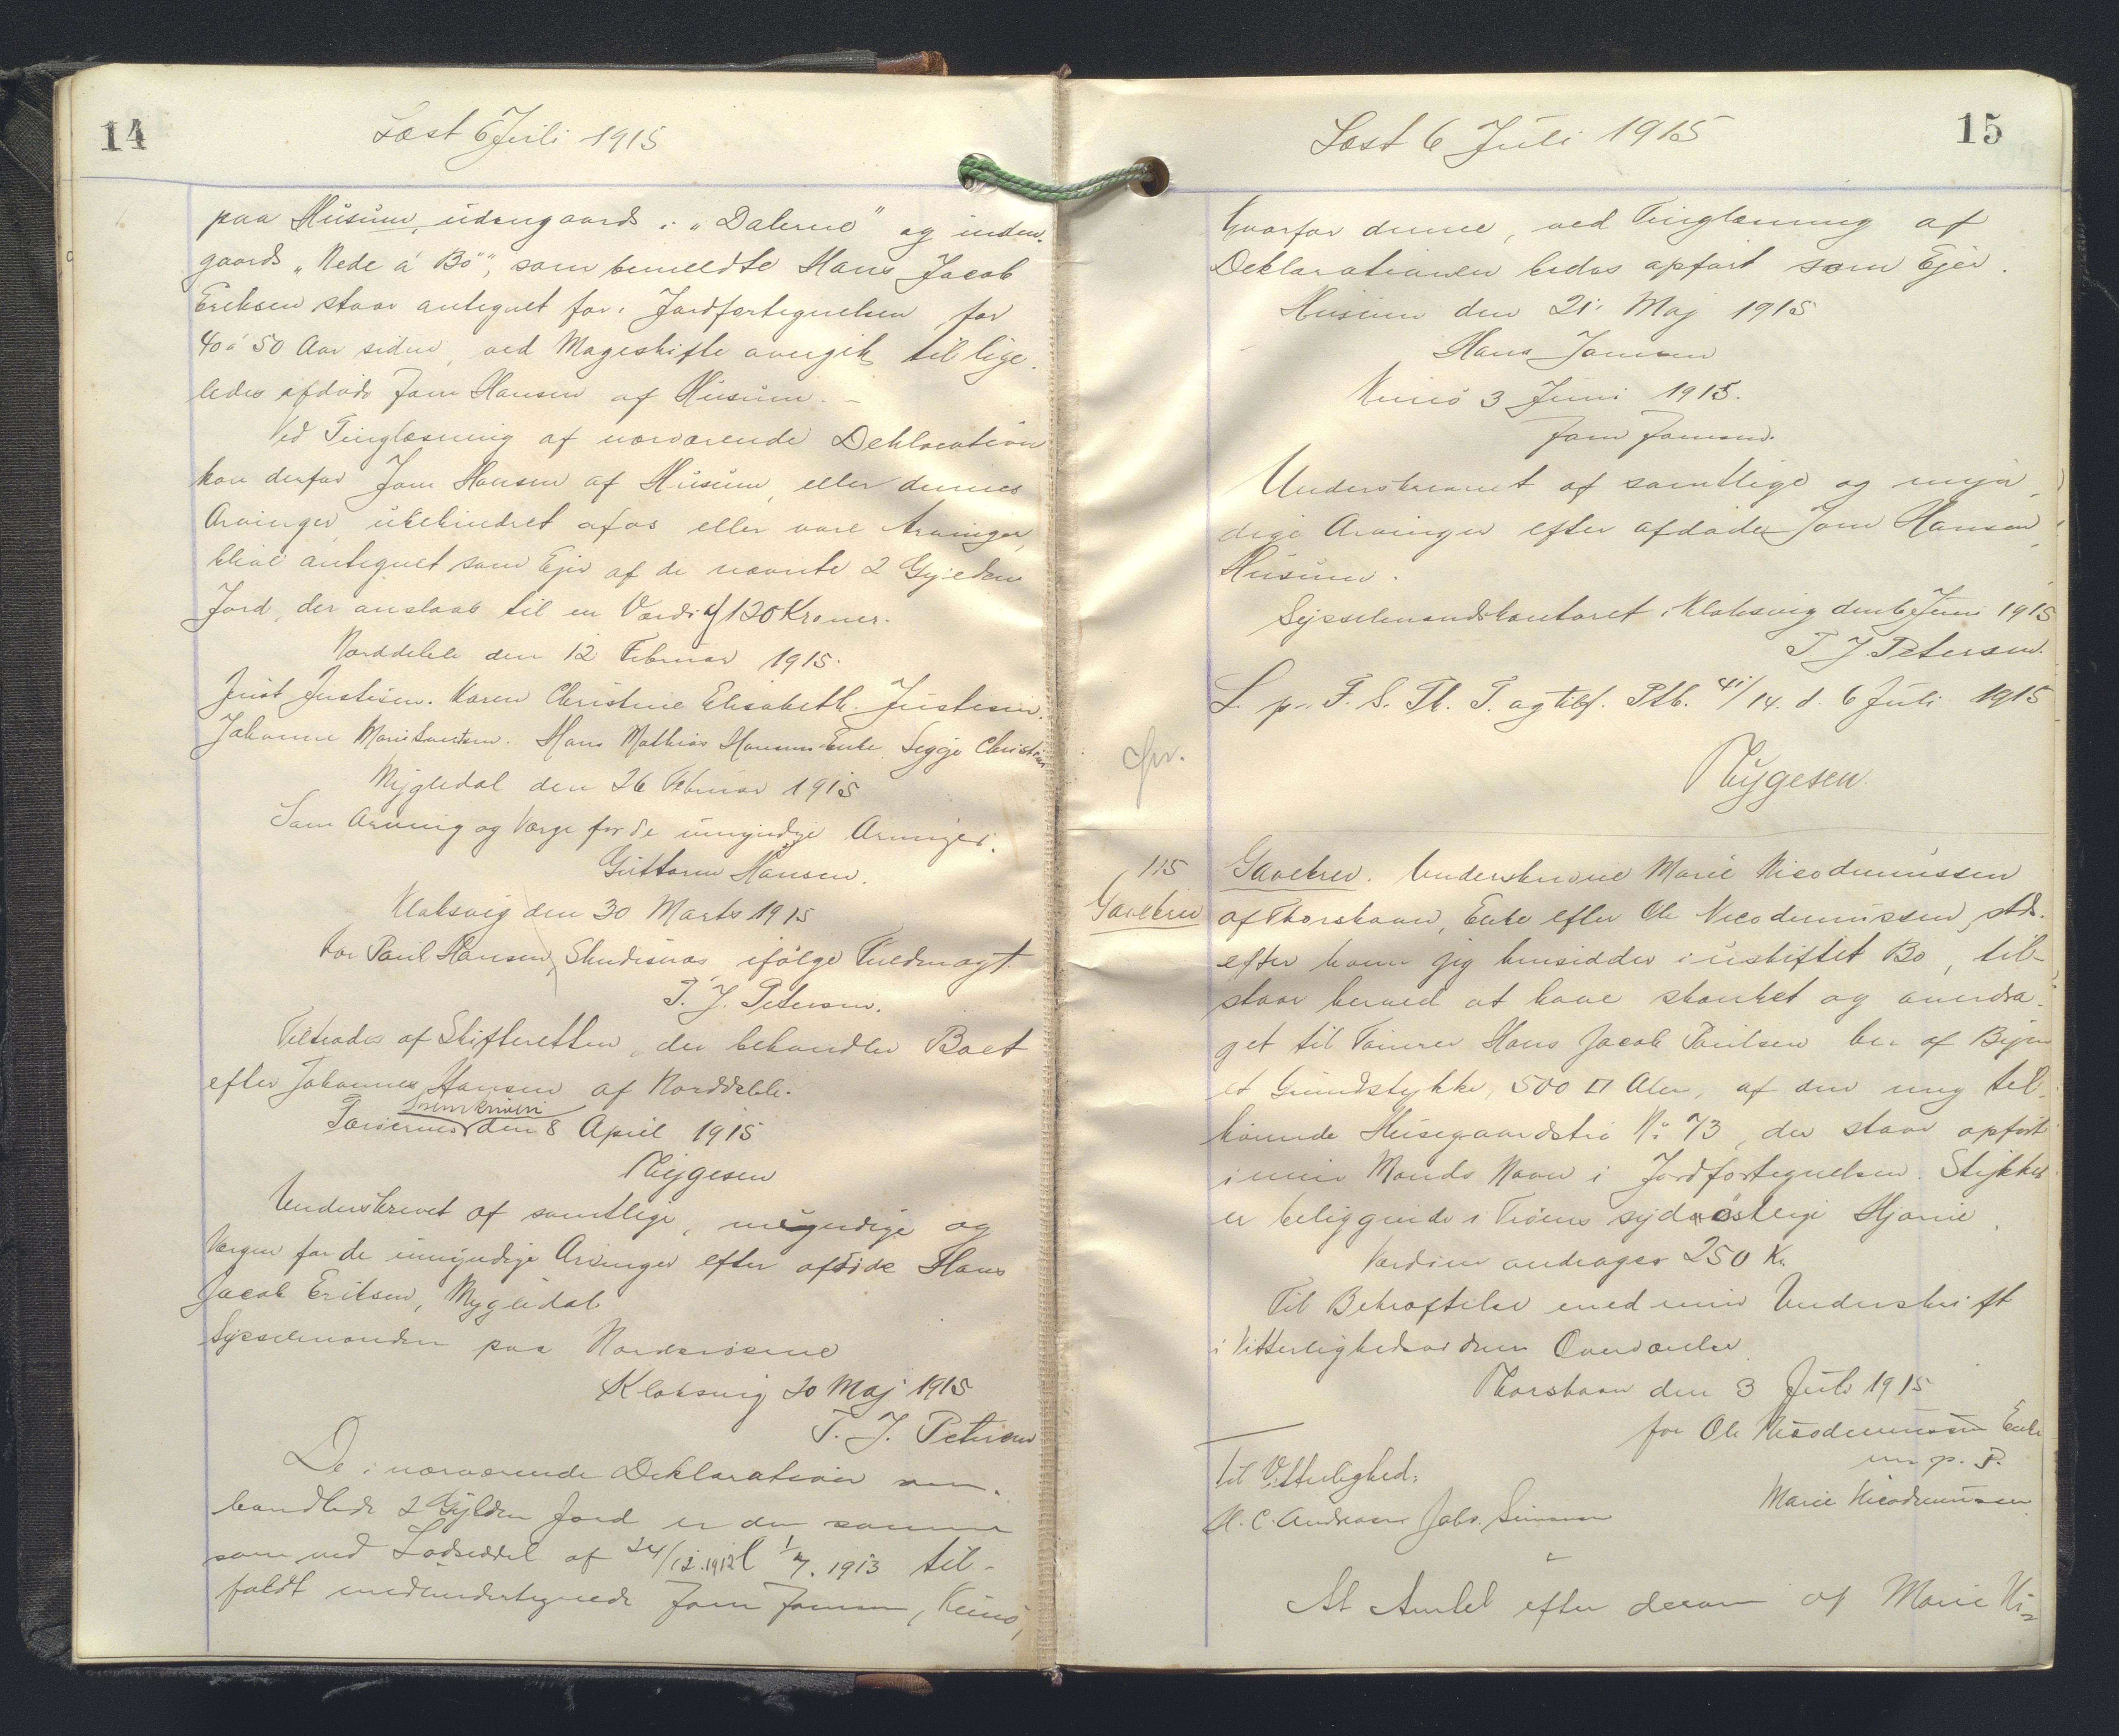 14
Læst 6 Juli 1915
paa Husum, udengaards i „Dalerne" og inden-
gaards „Nede á Bö", som bemeldte Hans Jacob
Eriksen staar antegnet for i Jordfortegnelsen for
40 á 50 Aar siden, ved Mageskifte overgik til lige-
ledes afdøde Joen Hansen af Husum. –
Ved Tinglæsning af nærværende Deklaration
kan derfor Joen Hansen af Husum, eller dennes
Arvinger, ubehindret af os eller vore Arvinger,
blive antegnet som Ejer af de nævnte 2 Gylden
Jord, der anslaas til en Værdi af 120 Kroner.
Norddeble den 12 Februar 1915.
Just Justesen. Karen Christine Elisabeth Justesen.
Johanne Marie Hans Mathias Hansens Enke Seggje Christine
Mygledal den 26 Februar 1915
Som Arving og Værge for de umyndige Arvinger.
Guttorm Hansen.
Klaksvig den 30 Marts 1915
For Poul Hansen, Skudisnæs ifølge Fuldmagt.
T. J. Petersen.
Tiltrædes af Skifteretten, der behandler Boet
efter Johannes Hansen af Norddeble.
Sorenskriveri
Færøernes den 8 April 1915
Rygesen
Underskrevet af samtlige, myndige og
Værgen for de umyndige Arvinger efter afdøde Hans
Jacob Eriksen, Mygledal
Sysselmanden paa Norderøerne
Klaksvig 20 Maj 1915
T. J. Petersen
De i nærværende Deklaration om-
handlede 2 Gylden Jord er den samme
som ved Lodseddel af 24/12.1912 l 1/7. 1913 til-
faldt medundertegnede Joen Joensen, Kunø,
15
Læst 6 Juli 1915
hvorfor denne, ved Tinglæsning af
Deklarationen bedes opført som Ejer.
Husum den 21. Maj 1915
Hans Joensen
Kunø 3 Juni 1915.
Joen Joensen.
Underskrevet af samtlige og myn-
dige Arvinger efter afdøde Joen Hansen,
Husum.
Sysselmandskontoret i Klaksvig den 6 Juni 1915
T. J. Petersen.
L. p. F. S. Th. T. og tilf. Ptb. 41/14. d. 6 Juli 1915
Rygesen.
115
Gavebrev
Gavebrev. Underskrevne Marie Nicodemussen
af Thorshavn, Enke efter Ole Nicodemussen, stds.
efter hvem jeg hensidder i uskiftet Bo, til-
staar herved at have skænket og overdra-
get til Tømrer Hans Jacob Poulsen her af Byen
et Grundstykke, 500 □ Alen, af den mig til-
hørende Husegaardstrø No 73, der staar opført
i min Mands Navn i Jordfortegnelsen. Stykket
er beliggende i Trøens sydøstlige Hjørne.
Værdien andrager 250 Kr.
Til Bekræftelse med min Underskrift
i Vitterlighedsvidners Overværelse
Thorshavn den 3 Juli 1915
for Ole Nicodemussens Enke
m. p. P.
Marie Nicodemussen
Til Vitterlighed:
H. C. Andreasen Johs. Simonsen
At Amtet efter derom af Marie Ni-